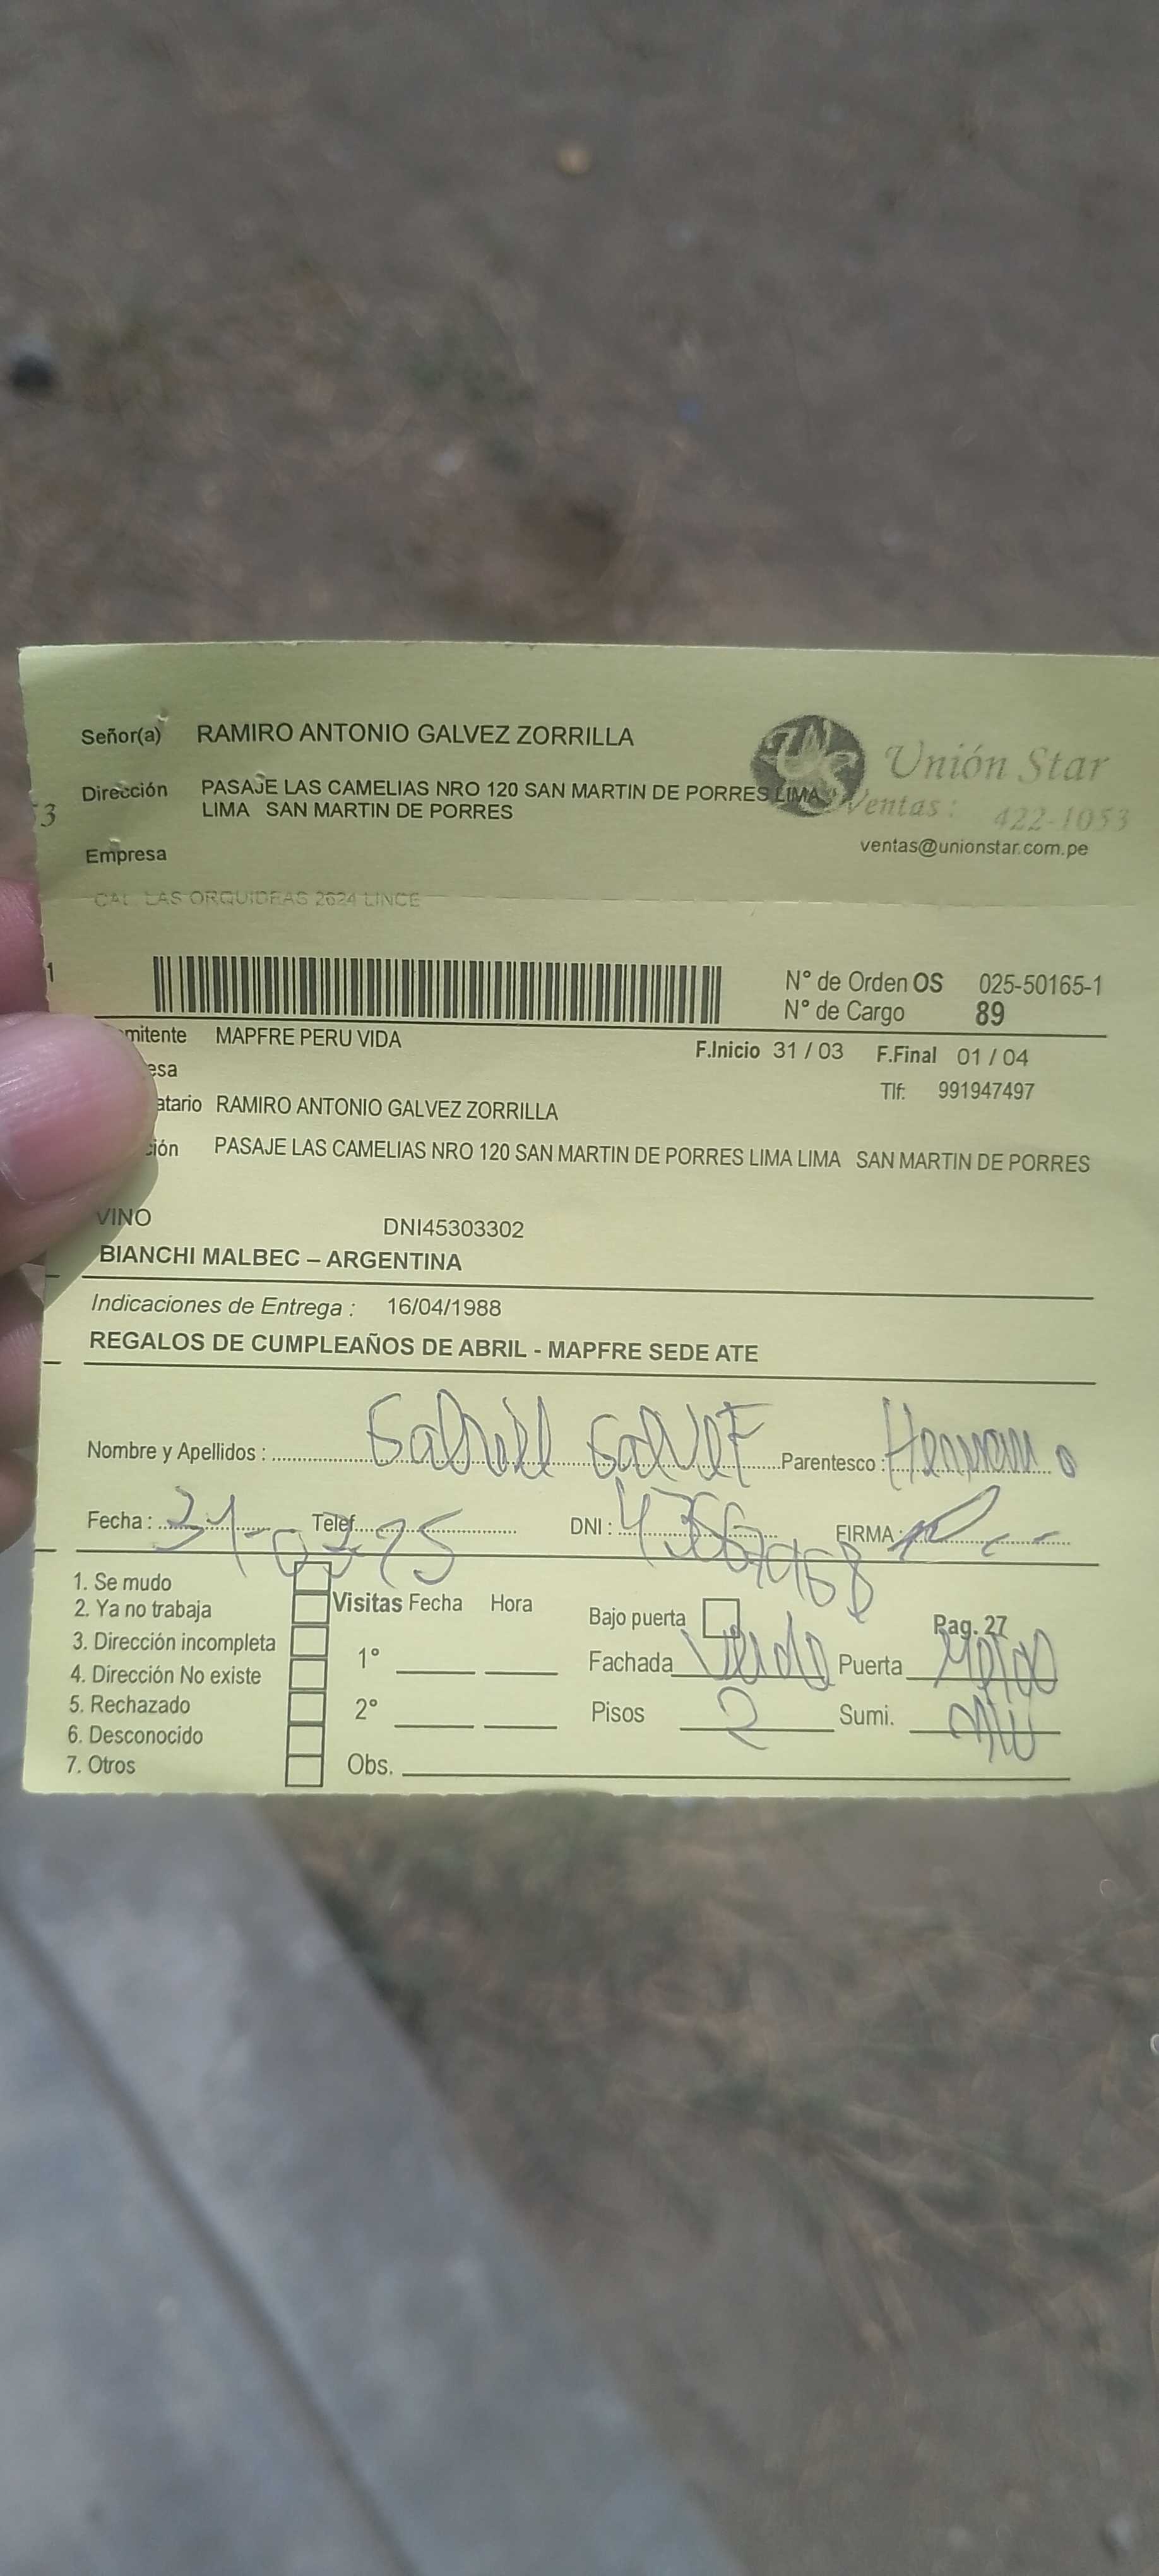 Señor(a) RAMIRO ANTONIO GALVEZ ZORRILLA
Unión Star
Dirección PASAJE LAS CAMELIAS NRO 120 SAN MARTIN DE PORRES LIMA
LIMA SAN MARTIN DE PORRES
Ventas: 422-1053
3
ventas@unionstar.com.pe
Empresa
CAL LAS ORQUIDEAS 2624 LINCE
1
N° de Orden OS 025-50165-1
N° de Cargo 89
mitente MAPFRE PERU VIDA
F.Inicio 31 / 03 F.Final 01 / 04
esa
Tlf: 991947497
atario RAMIRO ANTONIO GALVEZ ZORRILLA
ción PASAJE LAS CAMELIAS NRO 120 SAN MARTIN DE PORRES LIMA LIMA SAN MARTIN DE PORRES
VINO DNI45303302
BIANCHI MALBEC – ARGENTINA
Indicaciones de Entrega : 16/04/1988
REGALOS DE CUMPLEAÑOS DE ABRIL - MAPFRE SEDE ATE
Nombre y Apellidos : Parentesco : Hermano
Fecha : Telef. DNI : FIRMA :
1. Se mudo
2. Ya no trabaja
3. Dirección incompleta
4. Dirección No existe
5. Rechazado
6. Desconocido
7. Otros
Visitas Fecha Hora
1°
2°
Obs.
Bajo puerta Pag. 27
Fachada Puerta
Pisos 2 Sumi.